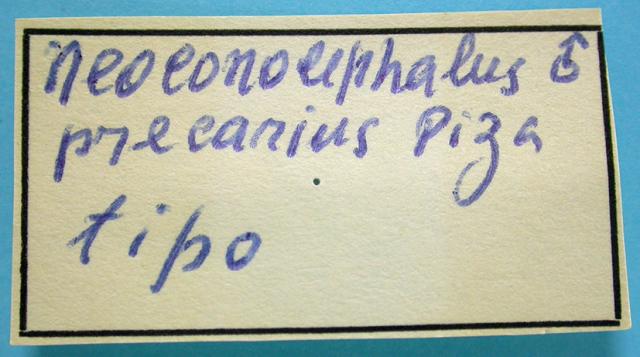 Neoconocephalus ♂
precarius Piza
tipo